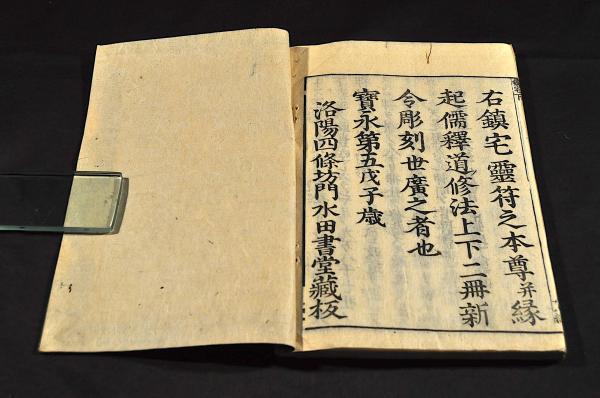 右鎮宅靈符之本尊并縁
起儒釋道修法上下二冊新
令彫刻世廣之者也
寶永第五戊子歳
洛陽四條坊門水田書堂藏板